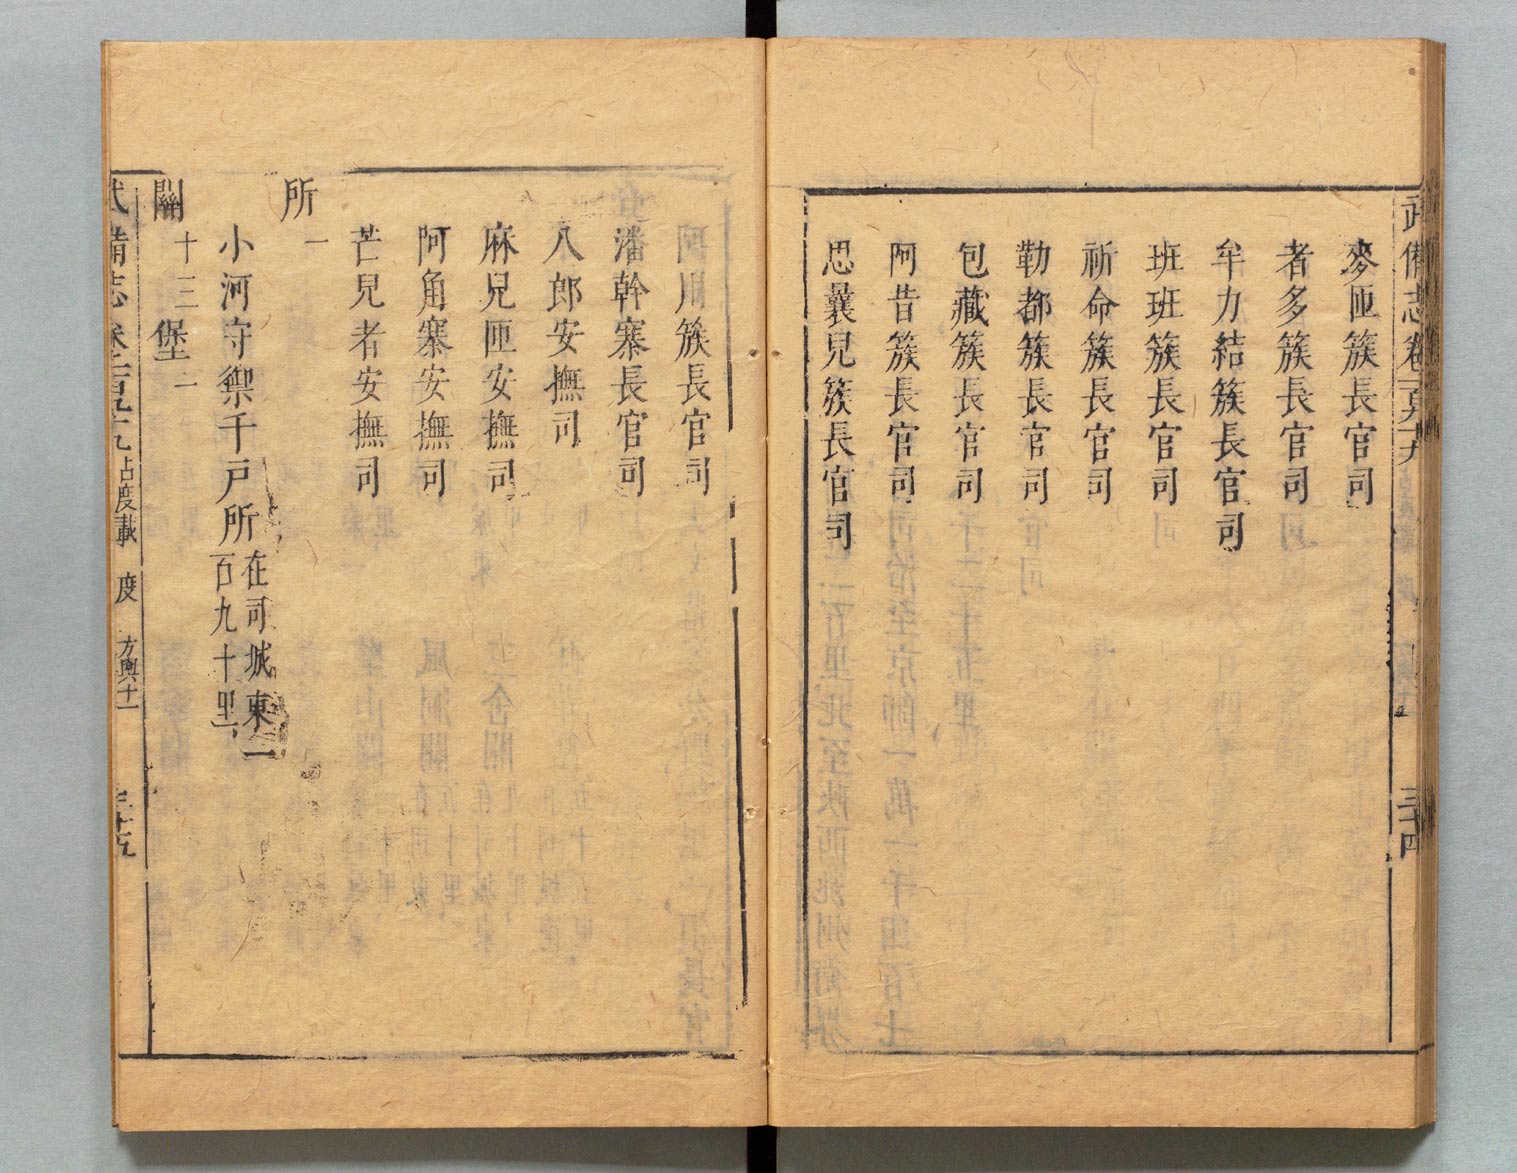 武備志卷一百九十九
三十四
麥匝簇長官司
者多簇長官司
牟力結簇長官司
班班簇長官司
祈命簇長官司
勒都簇長官司
包藏簇長官司
阿昔簇長官司
思曩兒簇長官司
阿用簇長官司
潘幹寨長官司
八郎安撫司
麻兒匝安撫司
阿角寨安撫司
芒兒者安撫司
所一
小河守禦千戶所在司城東一
百九十里
關十三堡一
武備志卷一百九十九 占度載 度 方輿十一 三十五